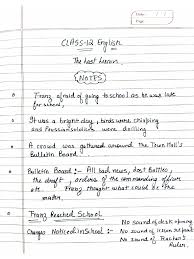 Date
Page
CLASS-12 English
The Last Lesson
(NOTES)
Franz afraid of going to school as he was late
for school,
It was a bright day, birds were chirping
and Prussian soldiers were drilling
A crowd was gathered around the Town Hall's
Bulletin Board
Bulletin Board :- All bad news, lost Battles,
the draft, orders of the commanding officer
etc. Franz thought what could be the
matter.
Franz Reached School
Changes Noticed in School :- No sound of desk opening
No sound of lesson repeat
No sound of Teacher's
Ruler.